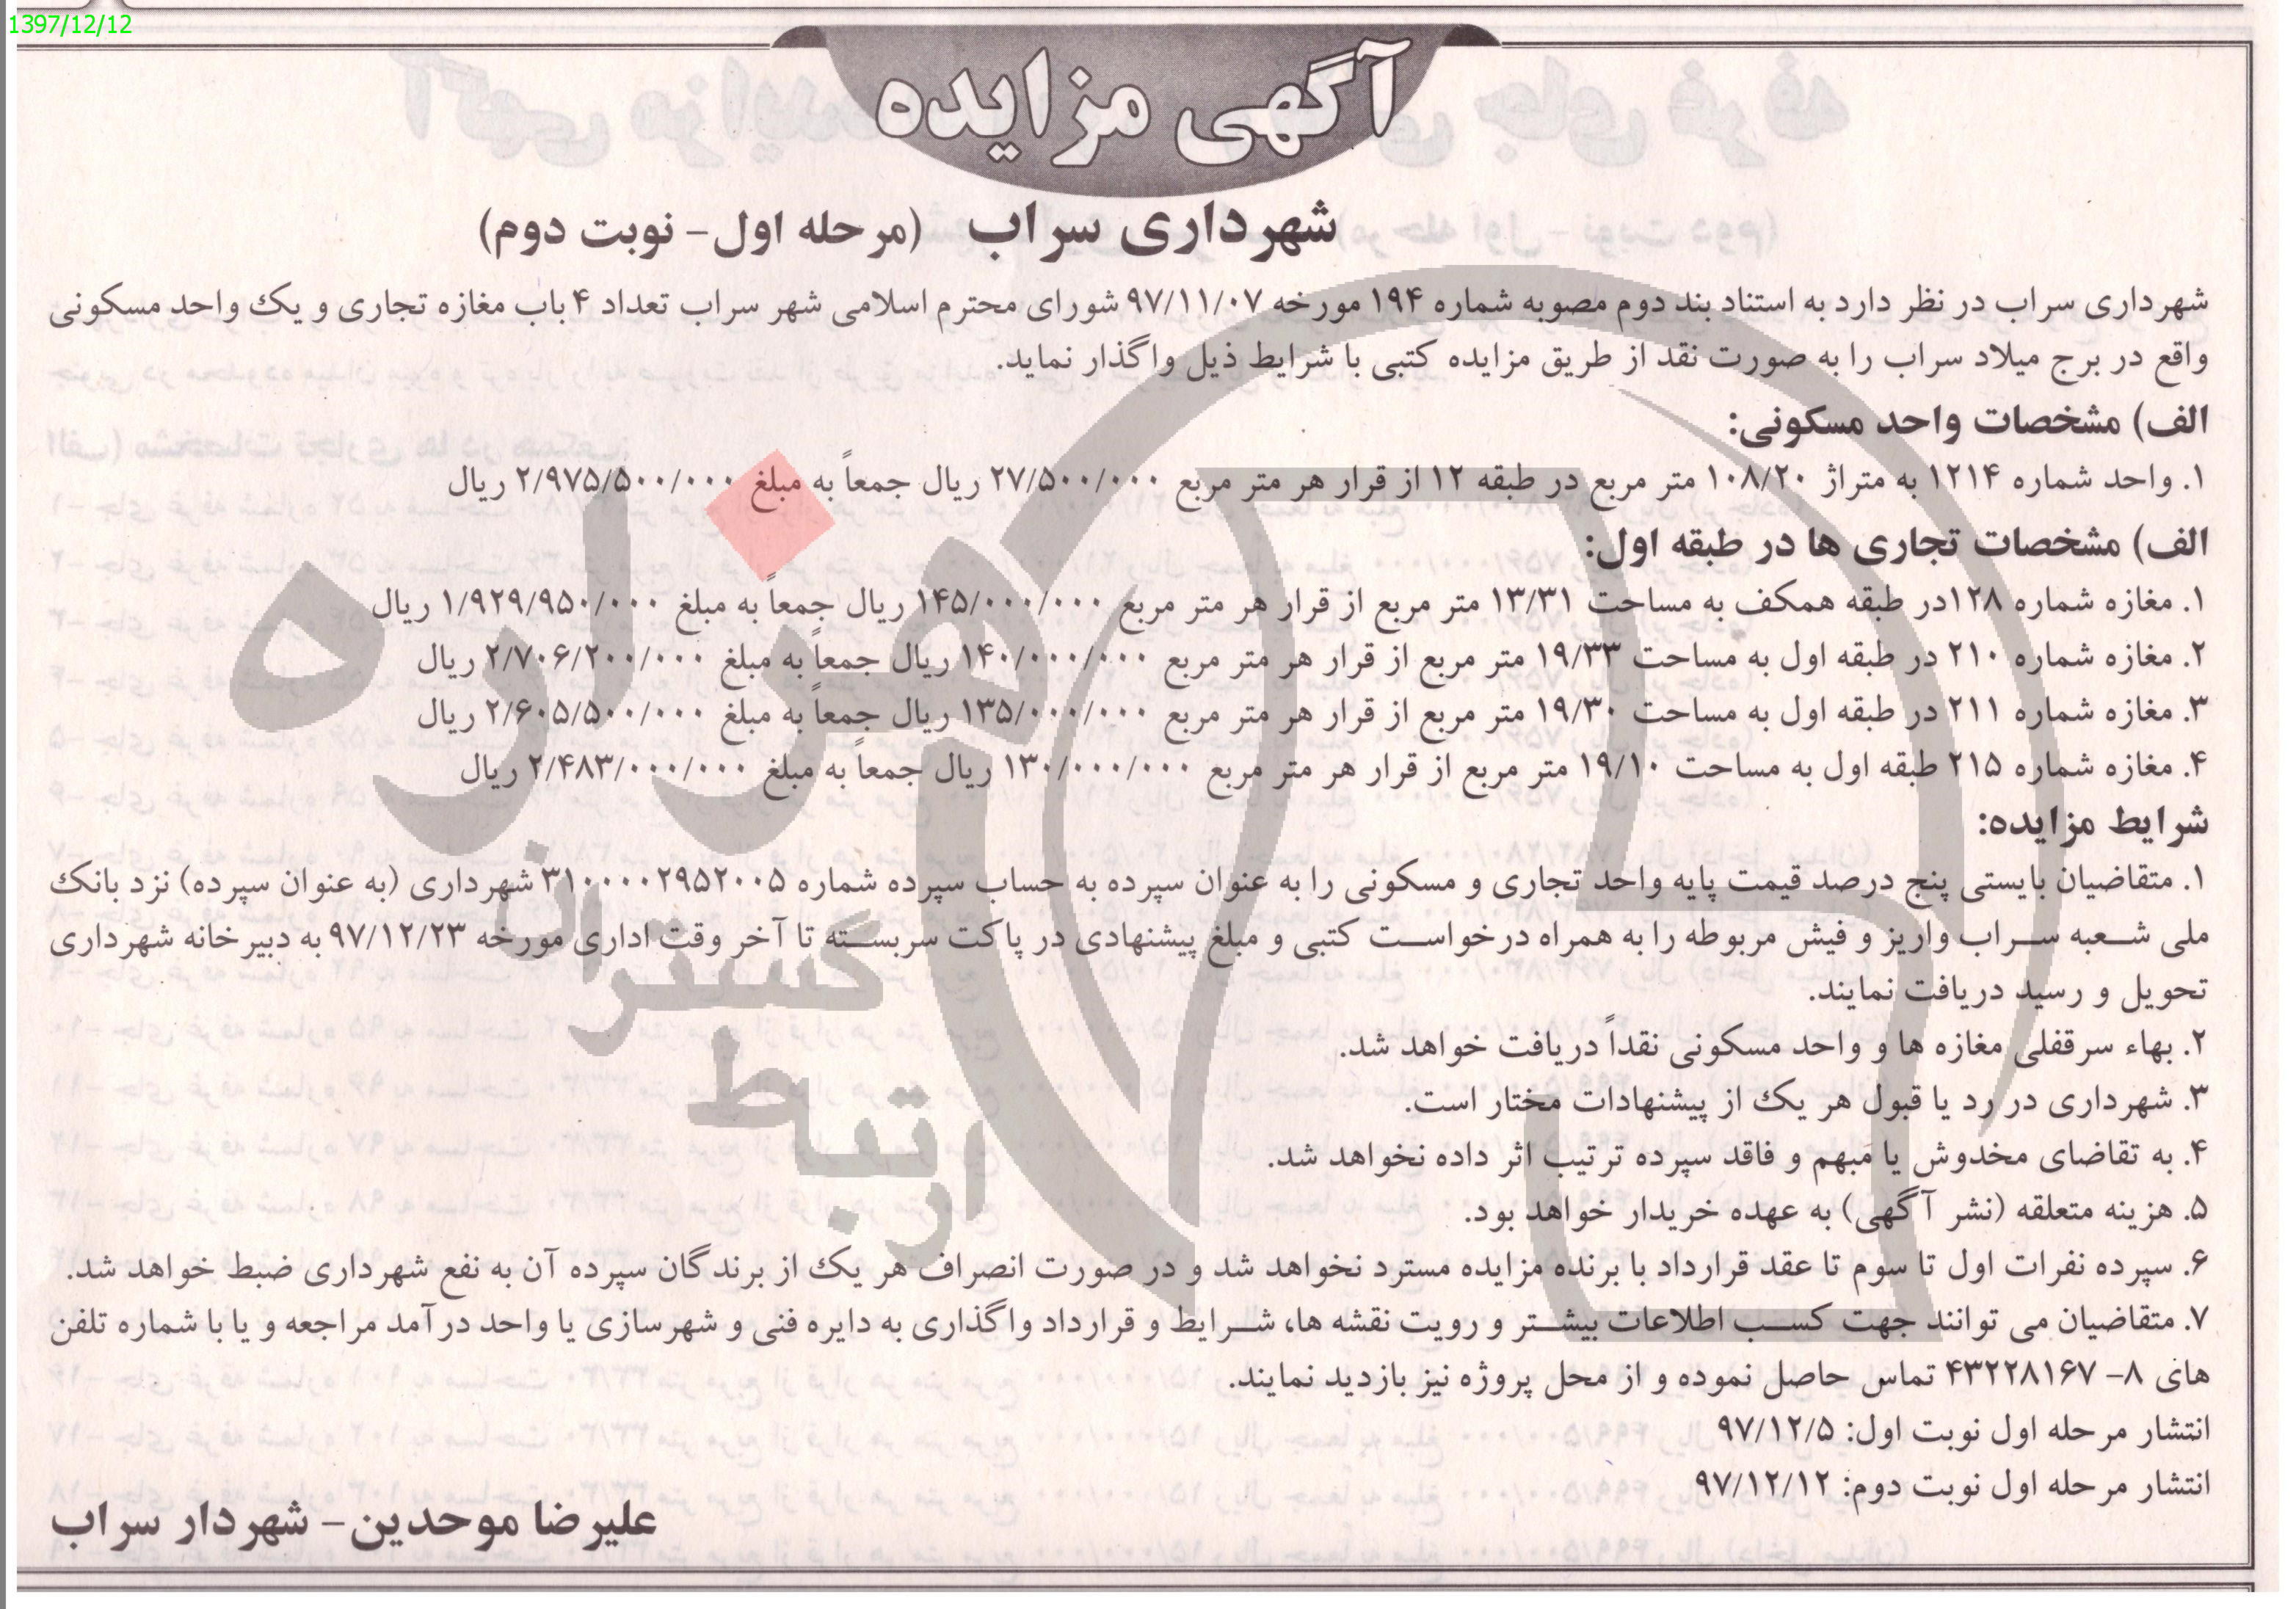 1397/12/12
آگهی مزایده
شهرداری سراب (مرحله اول- نوبت دوم)
شهرداری سراب در نظر دارد به استناد بند دوم مصوبه شماره ۱۹۴ مورخه ۹۷/۱۱/۰۷ شورای محترم اسلامی شهر سراب تعداد ۴ باب مغازه تجاری و یک واحد مسکونی
واقع در برج میلاد سراب را به صورت نقد از طریق مزایده کتبی با شرایط ذیل واگذار نماید.
الف) مشخصات واحد مسکونی:
۱. واحد شماره ۱۲۱۴ به متراژ ۱۰۸/۲۰ متر مربع در طبقه ۱۲ از قرار هر متر مربع ۲۷/۵۰۰/۰۰۰ ریال جمعاً به مبلغ ۲/۹۷۵/۵۰۰/۰۰۰ ریال
الف) مشخصات تجاری ها در طبقه اول:
۱. مغازه شماره ۱۲۸در طبقه همکف به مساحت ۱۳/۳۱ متر مربع از قرار هر متر مربع ۱۴۵/۰۰۰/۰۰۰ ریال جمعاً به مبلغ ۱/۹۲۹/۹۵۰/۰۰۰ ریال
۲. مغازه شماره ۲۱۰ در طبقه اول به مساحت ۱۹/۳۳ متر مربع از قرار هر متر مربع ۱۴۰/۰۰۰/۰۰۰ ریال جمعاً به مبلغ ۲/۷۰۶/۲۰۰/۰۰۰ ریال
۳. مغازه شماره ۲۱۱ در طبقه اول به مساحت ۱۹/۳۰ متر مربع از قرار هر متر مربع ۱۳۵/۰۰۰/۰۰۰ ریال جمعاً به مبلغ ۲/۶۰۵/۵۰۰/۰۰۰ ریال
۴. مغازه شماره ۲۱۵ طبقه اول به مساحت ۱۹/۱۰ متر مربع از قرار هر متر مربع ۱۳۰/۰۰۰/۰۰۰ ریال جمعاً به مبلغ ۲/۴۸۳/۰۰۰/۰۰۰ ریال
شرایط مزایده:
۱. متقاضیان بایستی پنج درصد قیمت پایه واحد تجاری و مسکونی را به عنوان سپرده به حساب سپرده شماره ۳۱۰۰۰۰۲۹۵۲۰۰۵ شهرداری (به عنوان سپرده) نزد بانک
ملی شعبه سراب واریز و فیش مربوطه را به همراه درخواست کتبی و مبلغ پیشنهادی در پاکت سربسته تا آخر وقت اداری مورخه ۹۷/۱۲/۲۳ به دبیرخانه شهرداری
تحویل و رسید دریافت نمایند.
۲. بهاء سرقفلی مغازه ها و واحد مسکونی نقداً دریافت خواهد شد.
۳. شهرداری در رد یا قبول هر یک از پیشنهادات مختار است.
۴. به تقاضای مخدوش یا مبهم و فاقد سپرده ترتیب اثر داده نخواهد شد.
۵. هزینه متعلقه (نشر آگهی) به عهده خریدار خواهد بود.
۶. سپرده نفرات اول تا سوم تا عقد قرارداد با برنده مزایده مسترد نخواهد شد و در صورت انصراف هر یک از برندگان سپرده آن به نفع شهرداری ضبط خواهد شد.
۷. متقاضیان می توانند جهت کسب اطلاعات بیشتر و رویت نقشه ها، شرایط و قرارداد واگذاری به دایره فنی و شهرسازی یا واحد درآمد مراجعه و یا با شماره تلفن
های ۸- ۴۳۲۲۸۱۶۷ تماس حاصل نموده و از محل پروژه نیز بازدید نمایند.
انتشار مرحله اول نوبت اول: ۹۷/۱۲/۵
انتشار مرحله اول نوبت دوم: ۹۷/۱۲/۱۲
علیرضا موحدین- شهردار سراب
هزاره
گستران
ارتباط